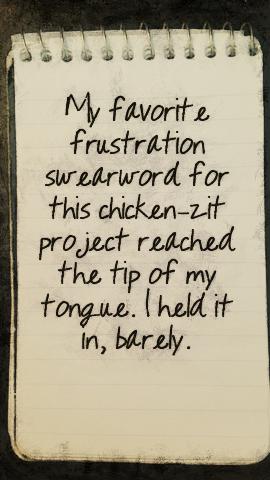 My favorite
frustration
swearword for
this chicken-zit
project reached
the tip of my
tongue. I held it
in, barely.